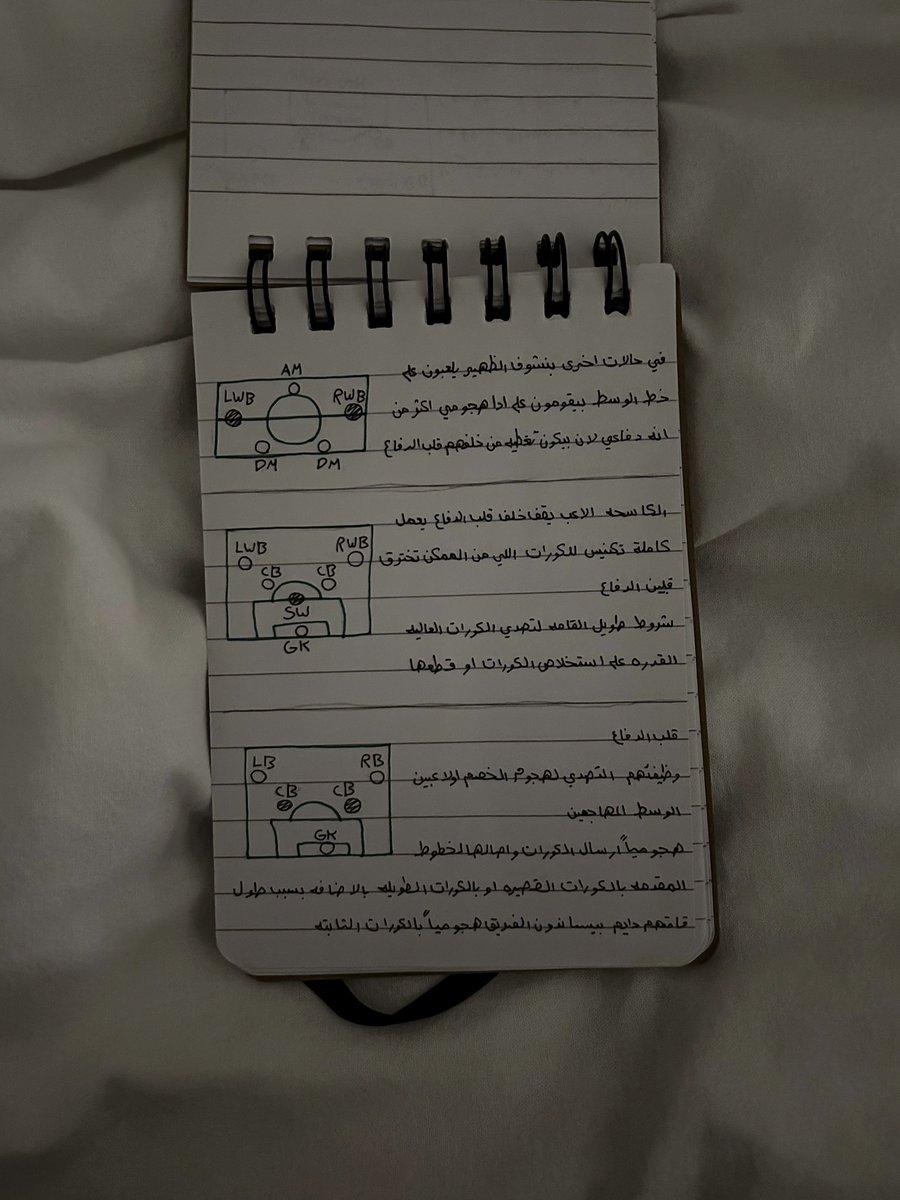 في حالات اخرى بنشوف الظهير يلعبون على
خط الوسط بيقومون على اداء هجومي اكثر من
انه دفاعي لان بيكون تغطيه من خلفهم قلب الدفاع
AM
LWB RWB
DM DM
الكاسحه الاعب يقف خلف قلب الدفاع يعمل
كاملة تكنيس للكورات اللي من الممكن تخترق
قلبين الدفاع
شروط طويل القامه لتصدي الكورات العاليه
القدره على استخلاص الكورات او قطعها
LWB RWB
CB CB
SW
GK
قلب الدفاع
وظيفتهم التصدي لهجوم الخصم او لاعبين
الوسط المهاجمين
هجومياً ارسال الكورات واصالها لخطوط
المقدمه بالكورات القصيره او بالكورات الطويله بالاضافه بسبب طول
قامتهم دايم بيساندون الفريق هجومياً بالكورات الثابته
LB RB
CB CB
GK